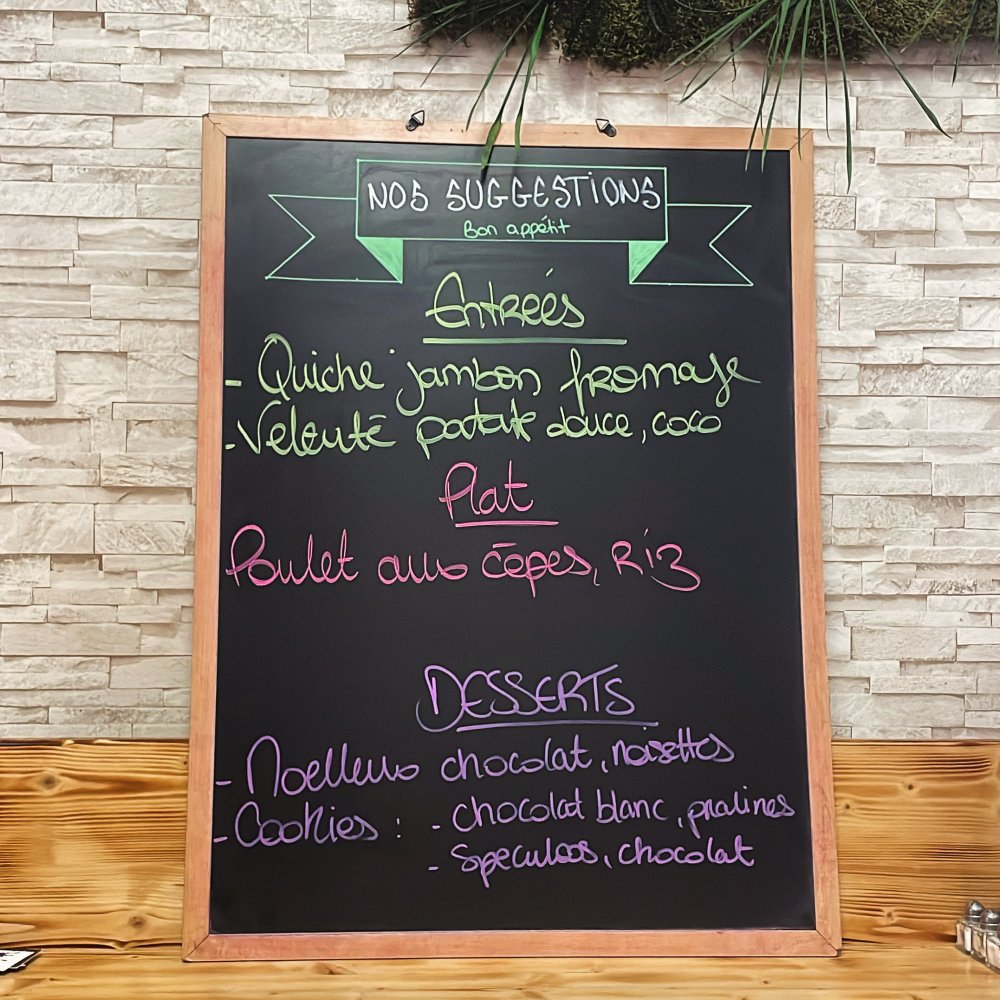 NOS SUGGESTIONS
Bon appétit
Entrées
- Quiche jambon fromage
- Velouté patate douce, coco
Plat
Poulet aux cèpes, Riz
DESSERTS
- Moelleux chocolat, noisettes
- Cookies : - chocolat blanc, pralines
- Speculoos, chocolat